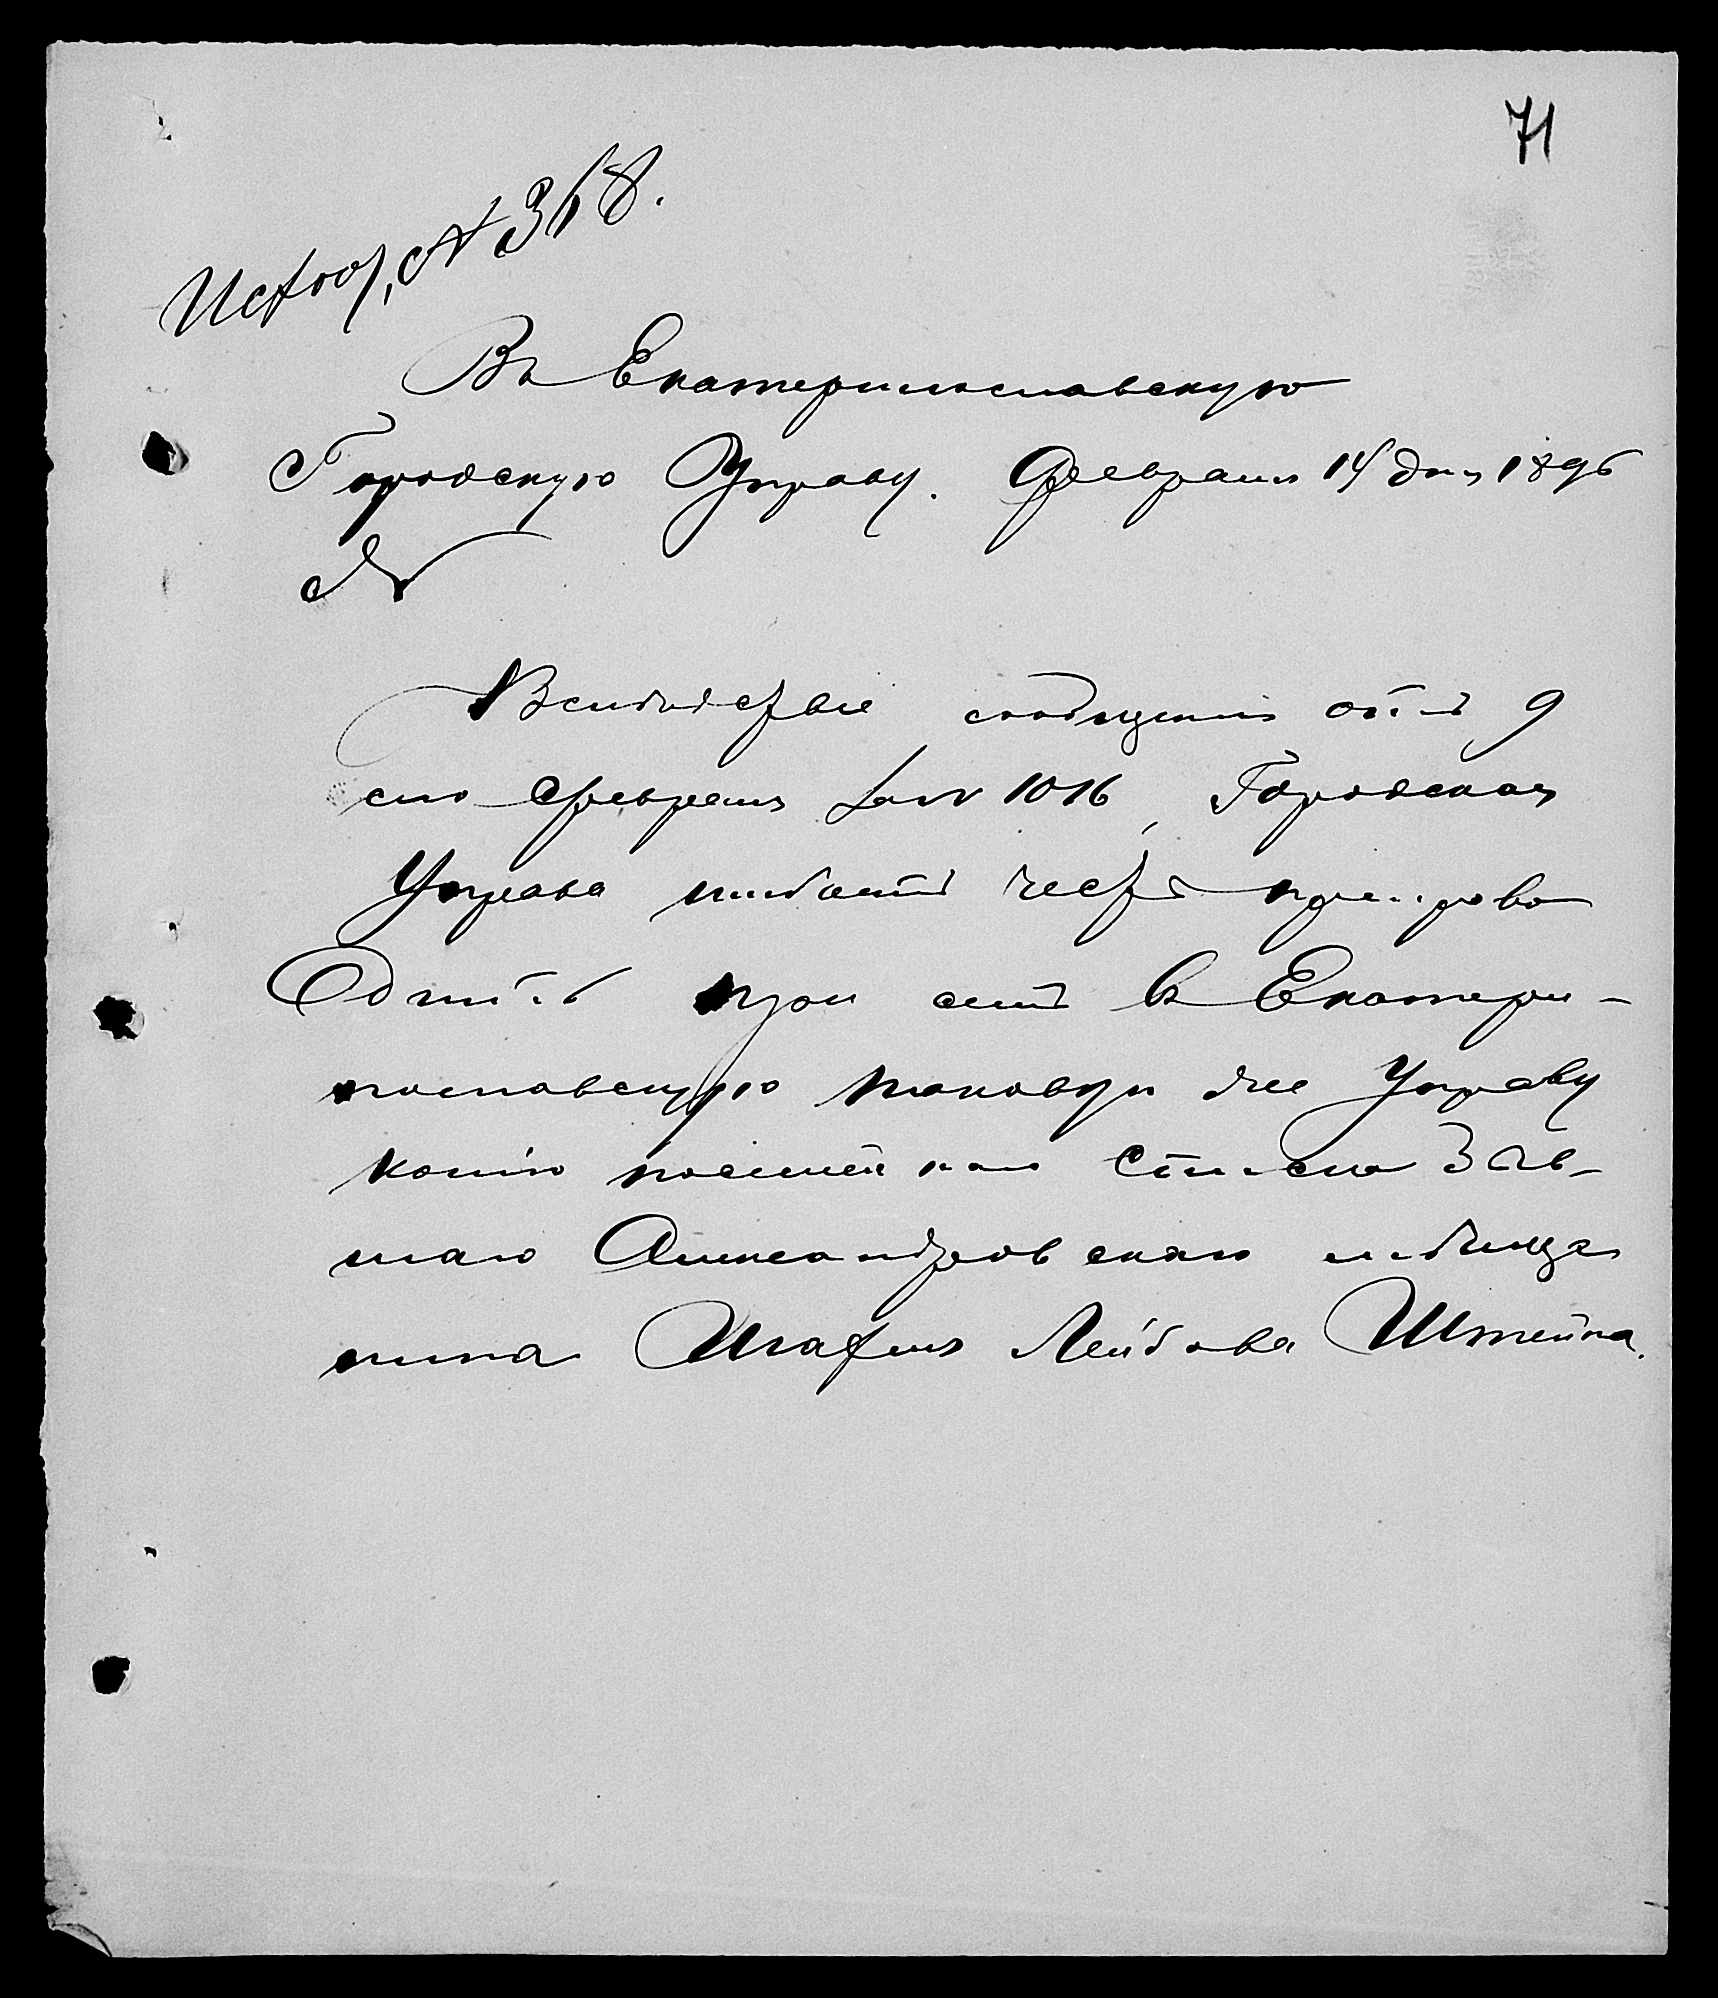 71
№ 368.
Въ Екатеринославскую
Городскую Управу. Февраля 14 дня 1896
№
Вслѣдствіе сообщенія отъ 9
сего Февраля за № 1016, Городская
Управа имѣетъ честь препрово
дить при семъ въ Екатери-
нославскую таковую же Управу
копію посемейнаго списка
Александровскаго мѣща
нина Лейбова Штейна.